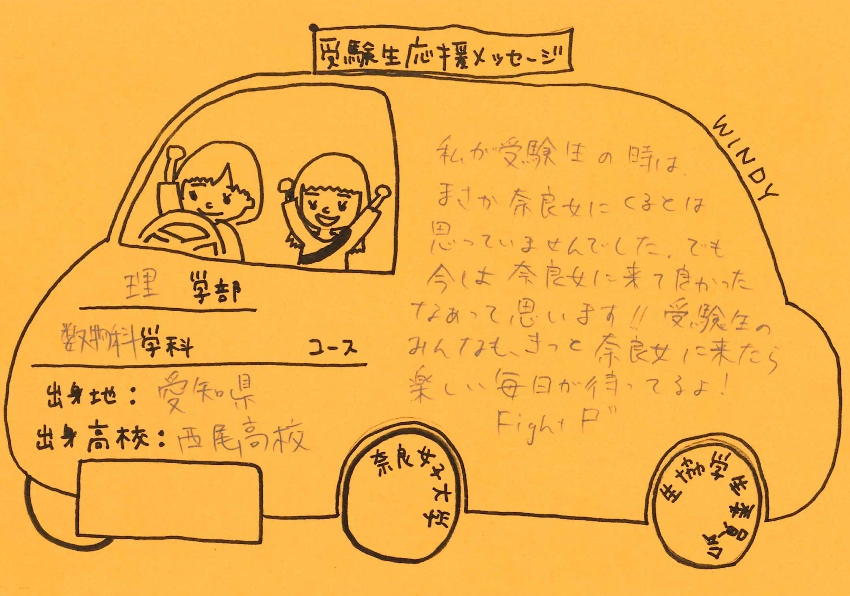 受験生応援メッセージ
WINDY
私が受験生の時は、
まさか奈良女にくるとは
思っていませんでした。でも
今は奈良女に来て良かった
なぁって思います!!受験生の
みんなも、きっと奈良女に来たら
楽しい毎日が待ってるよ!
Fight
理 学部
数物科学科 コース
出身地:愛知県
出身高校:西尾高校
奈良女子大学
生協学生委員会